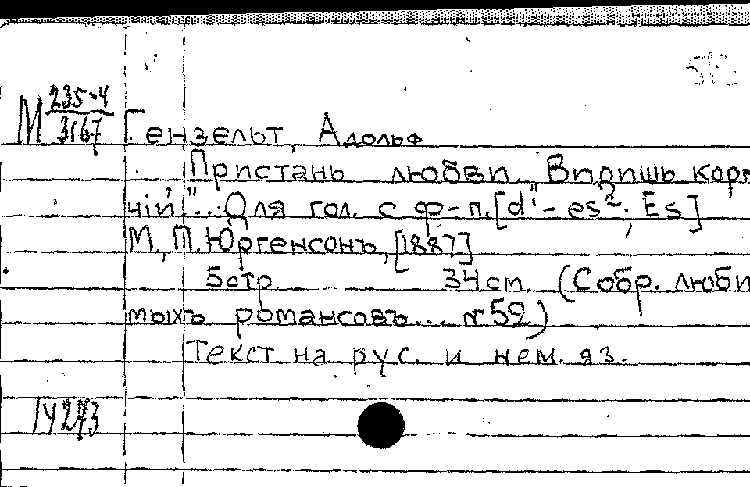 М 235-4/3167 Гензельт, Адольф
Пристань любви. Впришь корм
чій"... Для гол. с ф-п. [d'-es²; Es]
М., П. Юргенсонъ, [1887]
5 стр 34 см. (Собр. люби
мыхъ романсовъ... № 59)
Текст на рус. и нем. яз.
14273